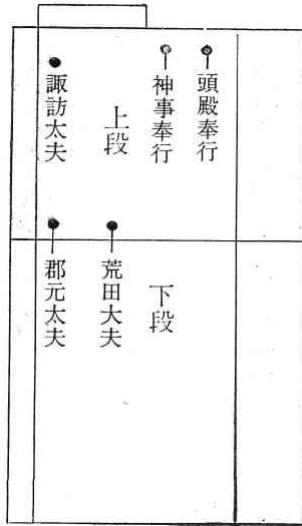 頭殿奉行
神事奉行
上段
諏訪太夫
下段
荒田大夫
郡元太夫